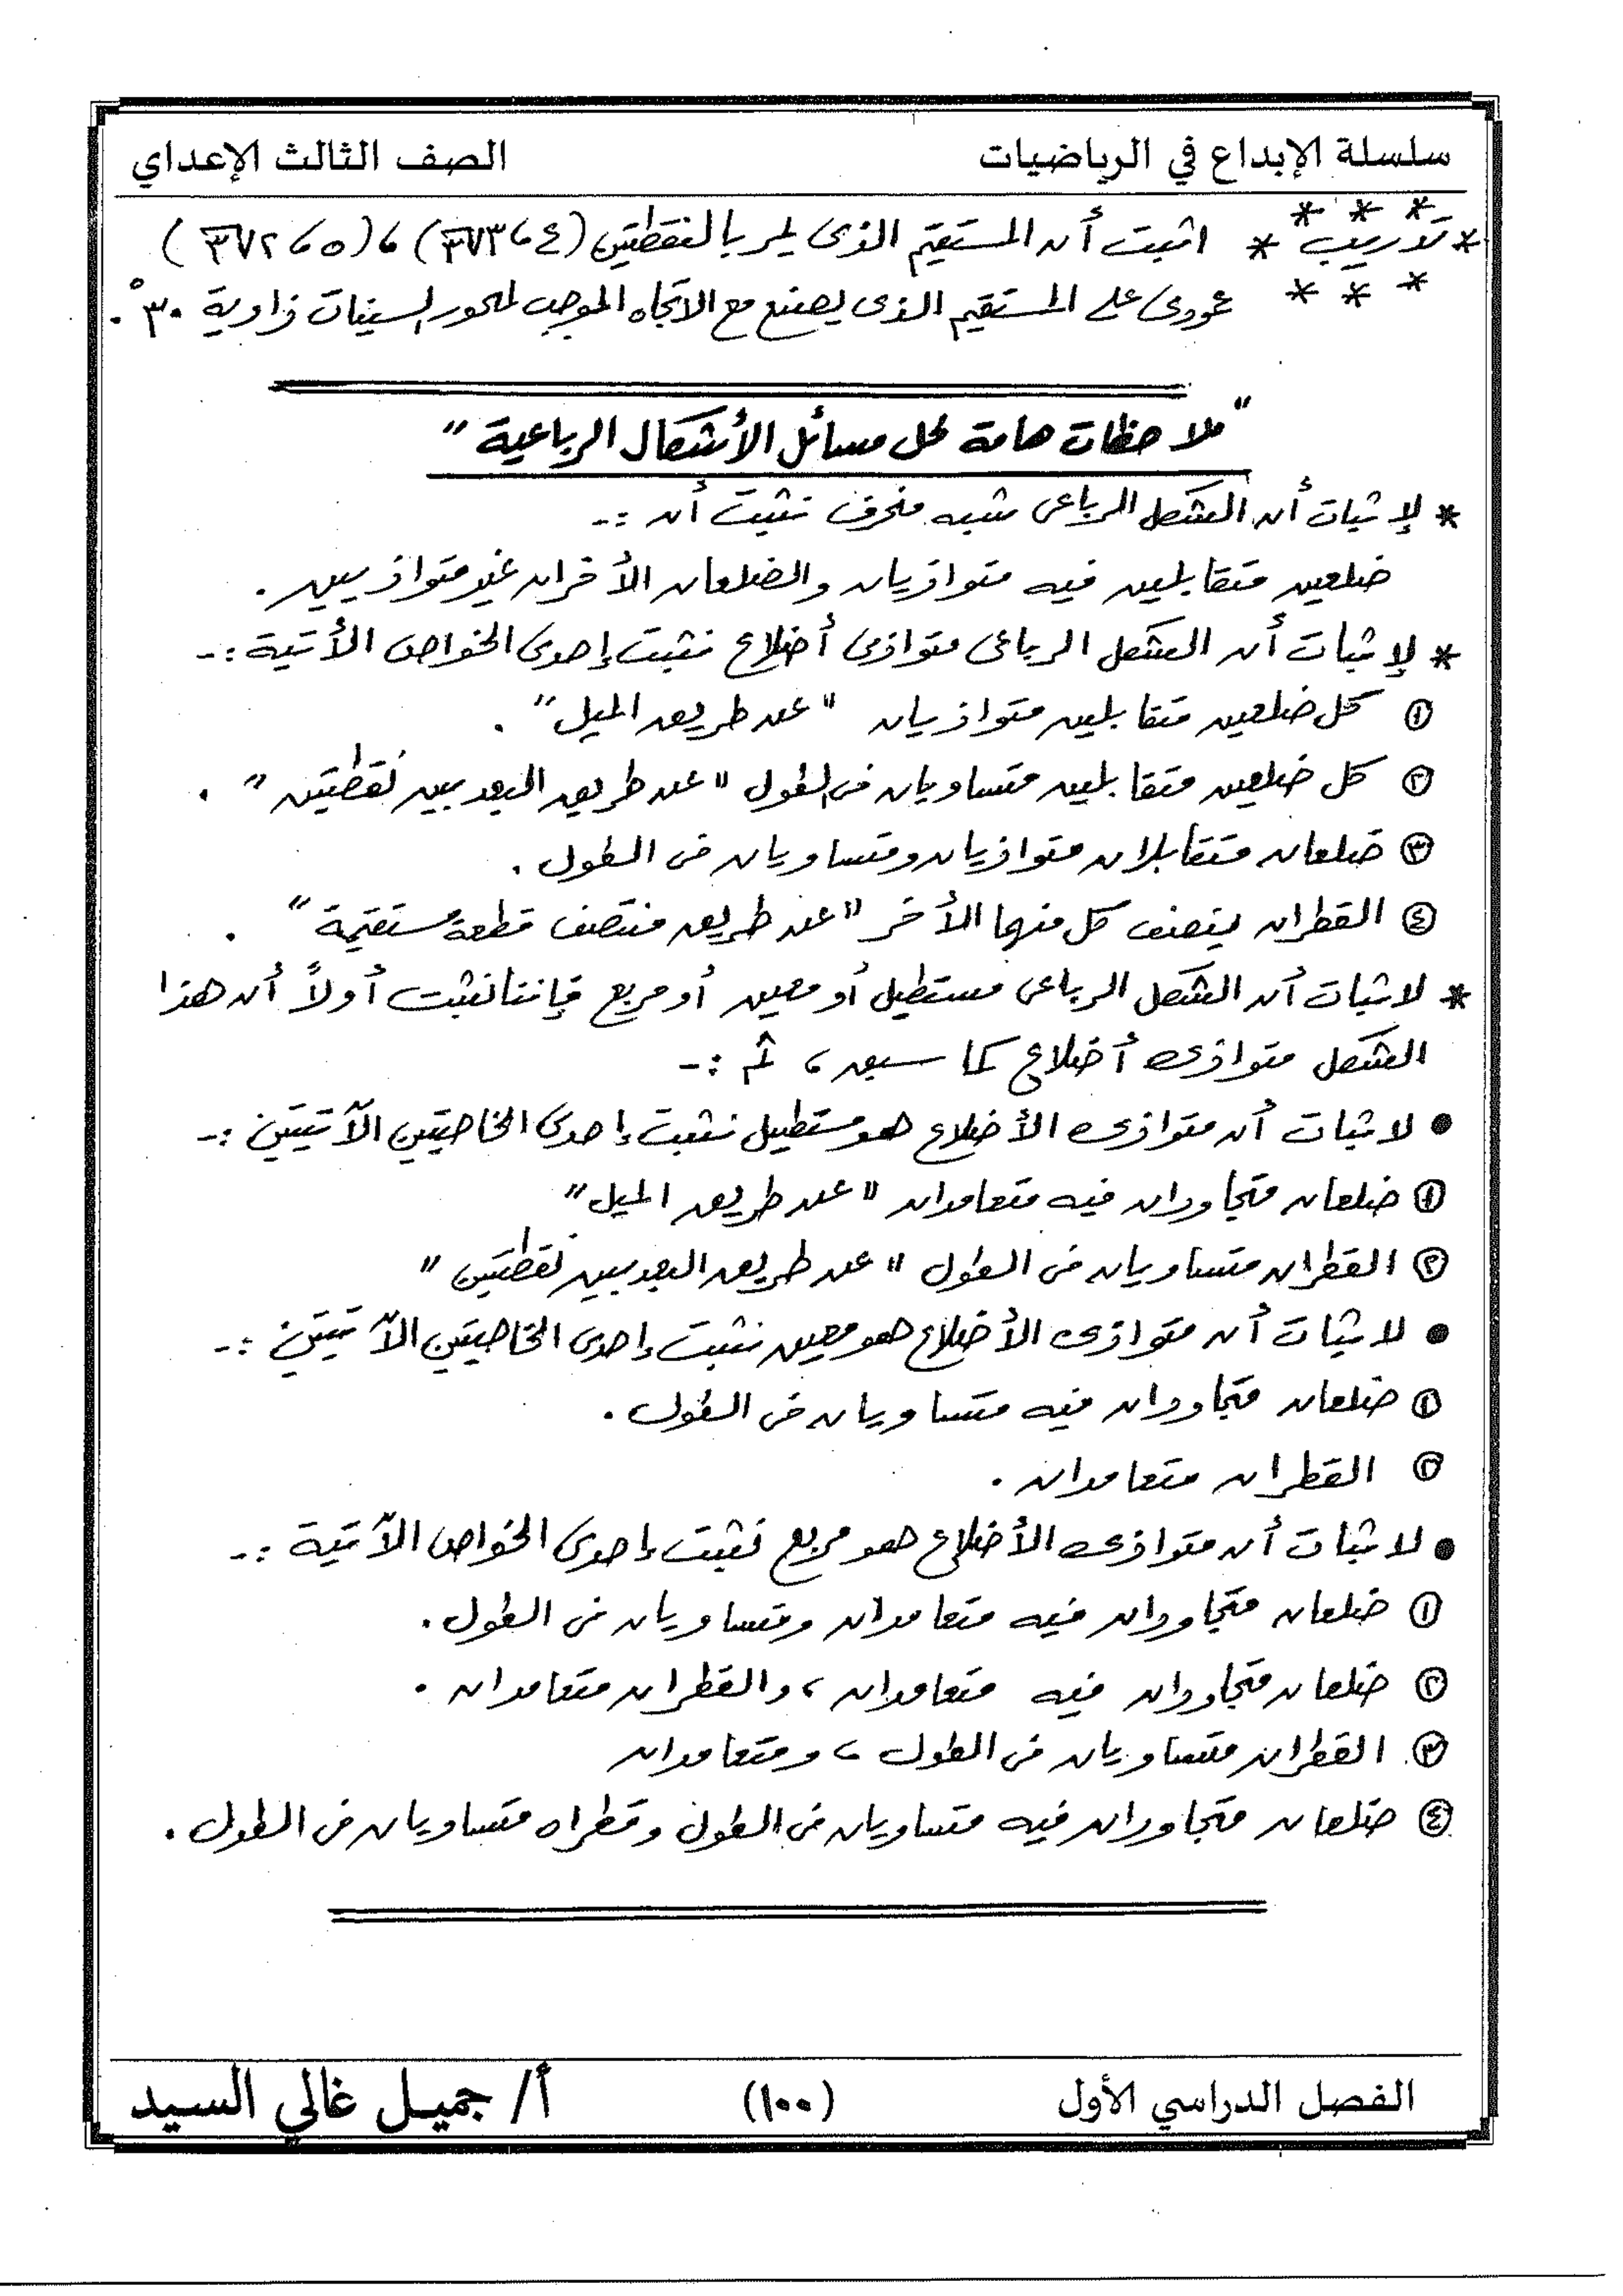 سلسلة الإبداع في الرياضيات
الصف الثالث الإعداي
* تدريب * اثبت أن المستقيم الذى يمر بالنقطتين (٤ ، ٣√٣) ، (٥ ، ٢√٣)
عمودى على المستقيم الذى يصنع مع الاتجاه الموجب لمحور السينات زاوية ٣٠°.
"ملاحظات هامة لحل مسائل الأشكال الرباعية"
* لإثبات أن الشكل الرباعى شبه منحرف نثبت أن :-
ضلعين متقابلين فيه متوازيان والضلعان الأخران غير متوازيين.
* لإثبات أن الشكل الرباعى متوازى أضلاع نثبت إحدى الخواص الأتية :-
① كل ضلعين متقابلين متوازيان "عن طريق الميل".
② كل ضلعين متقابلين متساويان فى الطول "عن طريق البعد بين نقطتين".
③ ضلعان متقابلان متوازيان ومتساويان فى الطول.
④ القطران ينصف كل منهما الأخر "عن طريق منتصف قطعة مستقيمة".
* لاثبات أن الشكل الرباعى مستطيل أو معين أو مربع فإننا نثبت أولاً أن هذا
الشكل متوازى أضلاع كما سبق ، ثم :-
● لاثبات أن متوازى الأضلاع هو مستطيل نثبت إحدى الخاصيتين الآتيتين :-
① ضلعان متجاوران فيه متعامدان "عن طريق الميل"
② القطران متساويان فى الطول "عن طريق البعد بين نقطتين"
● لاثبات أن متوازى الأضلاع هو معين نثبت إحدى الخاصيتين الآتيتين :-
① ضلعان متجاوران فيه متساويان فى الطول.
② القطران متعامدان.
● لاثبات أن متوازى الأضلاع هو مربع نثبت إحدى الخواص الآتية :-
① ضلعان متجاوران فيه متعامدان ومتساويان فى الطول.
② ضلعان متجاوران فيه متعامدان ، والقطران متعامدان.
③ القطران متساويان فى الطول ، ومتعامدان
④ ضلعان متجاوران فيه متساويان فى الطول وقطراه متساويان فى الطول.
الفصل الدراسي الأول
(١٠٠)
أ/ جميل غالي السيد